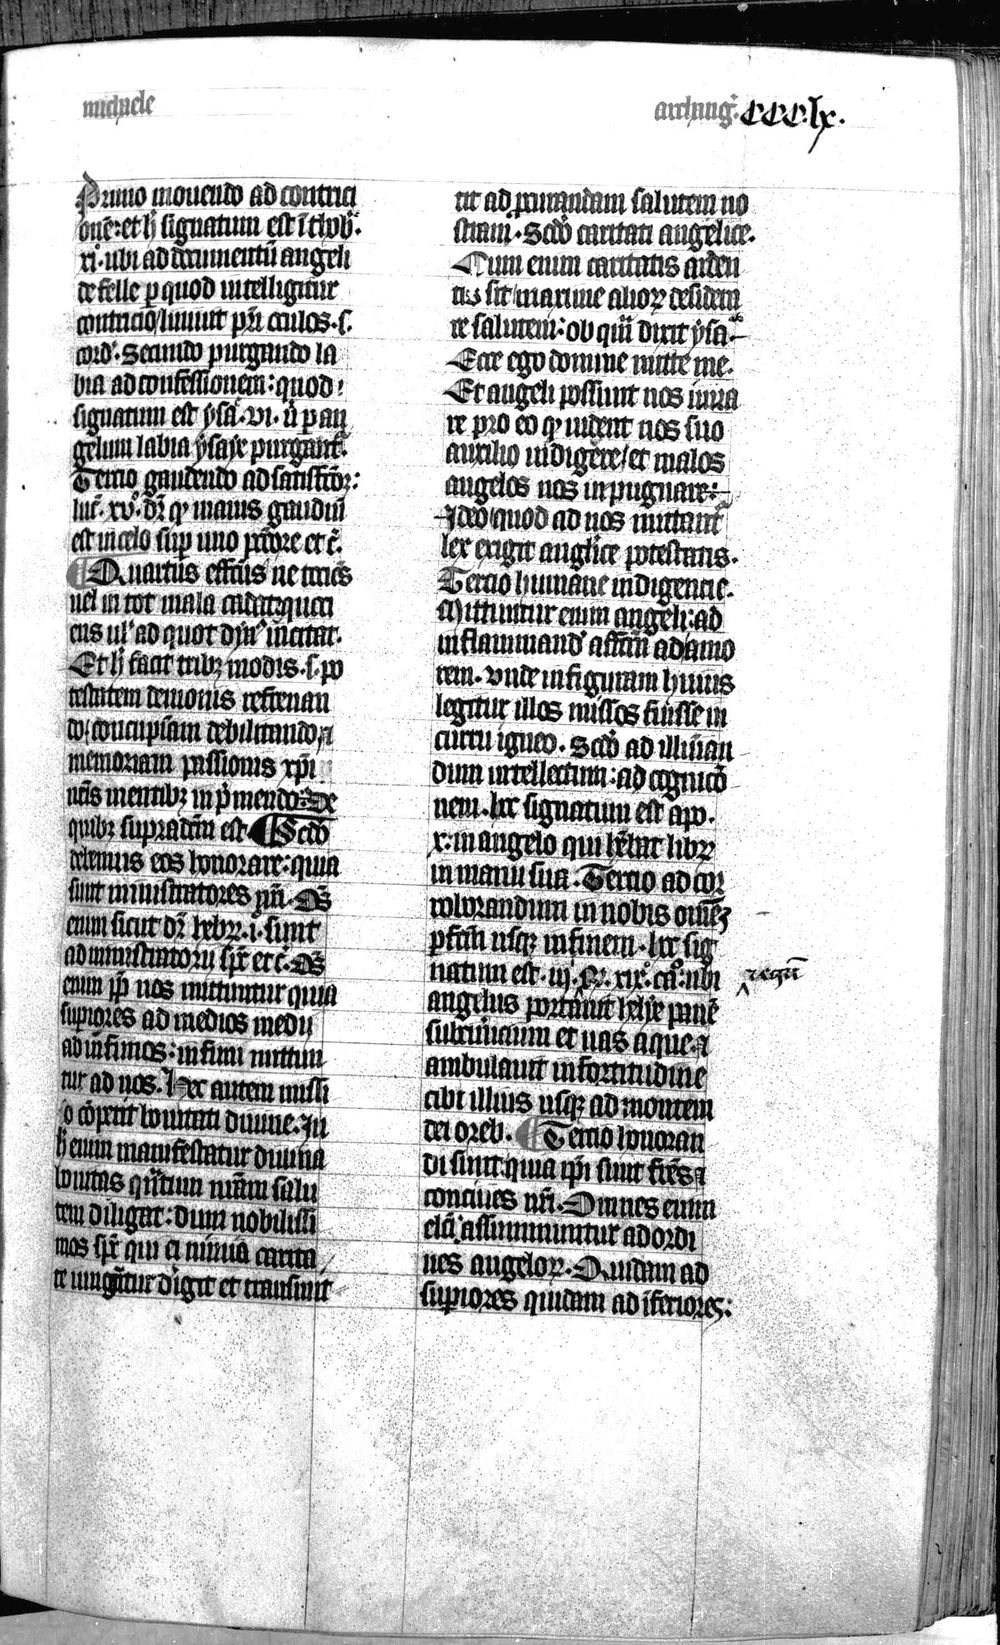 michaele
archang̃. CCClx.
Primo mouendo ad contrici
onē: et h̄ signatum est ī thob̄.
xi. ubi ad documentū angeli
de felle ꝑ quod intelligitur
contricio / liniuit pr̄i oculos .s.
cord̾. Secundo purgando la
bia ad confessionem: quod
signatum est ysa. vi. ū ꝑ an
gelum labia ysaye purgant̾.
Tercio gaudendo ad satisfc̄oꝫ:
luc̄. xvͦ. dr̄ ꝙ maius gaudiū
est in celo suꝑ uno pc̄c̄ore et c̄.
¶ Quartus effc̄us ne tociēs
uel in tot mala cadat: queri
ens ul̾ ad quot dyn̾ incitat.
Et h̄ facit tribꝫ modis .s. po
testatem demonis refrenan
do / concupīsam debilitando ⁊
memoriam passionis xp̄i
nr̄is mentibꝫ inp̄mendo: De
quibꝫ supradc̄m est. ¶ Scd̄o
debemus eos honorare: quia
sunt ministratores nr̄i. Oēs
enim sicut dr̄ hebrꝫ. i. sunt
administratorii sp̄c et c̄. Oēs
enim ip̄i nos mittuntur quia
supiores ad medios medii
ad infimos: infimi mittun
tur ad nos. Hec autem missi
o cōpetit bonitati diuine. In
h̄ enim manifestatur diuina
bonitas qn̄tum nr̄am salu
tem diligat: dum nobilissi
mos sp̄c qui ei nimia carita
te iungūtur d̾igit et transmit
tit ad ꝓcurandam salutem no
stram. Scd̄o caritati angelice.
Cum enim caritatis arden
tis sit / maxime alioꝝ desidera
re salutem: ob qua̅ dixit ysa.
Ecce ego domine mitte me.
Et angeli possunt nos iuua
re pro eo ꝙ uident nos suo
auxilio indigere / et malos
angelos nos inpugnare:
Ideo quod ad nos mittant̾
lex exigit anglice potestatis.
Tercio humane indigencie.
Mittuntur enim angeli: ad
inflammand̾ affc̄m ad amo
rem. Vnde in figuram huius
legitur illos missos fuisse in
curru igneo. Scd̄o ad illūian
dum intellectum: ad cognicō
nem. hec signatum est apo.
x: in angelo qui hēbat librꝫ
in manu sua. Tercio ad cor
roborandum in nobis omnēꝫ
ꝑfcm̄ usqꝫ in finem. hec sig
natum est. iij. R̾. xix. caͦ. ubi
regū
angelus portauit helye panē
subcinicium et uas aque ⁊
ambulauit in fortitudine
cibi illius usqꝫ ad montem
dei oreb. ¶ Tercio honoran
di sunt: quia ip̄i sunt fr̄es ⁊
conciues nr̄i. Omnes enim
elc̄i assummuntur ad ordi
nes angeloꝝ. Quidam ad
supiores quidam ad īferiores: